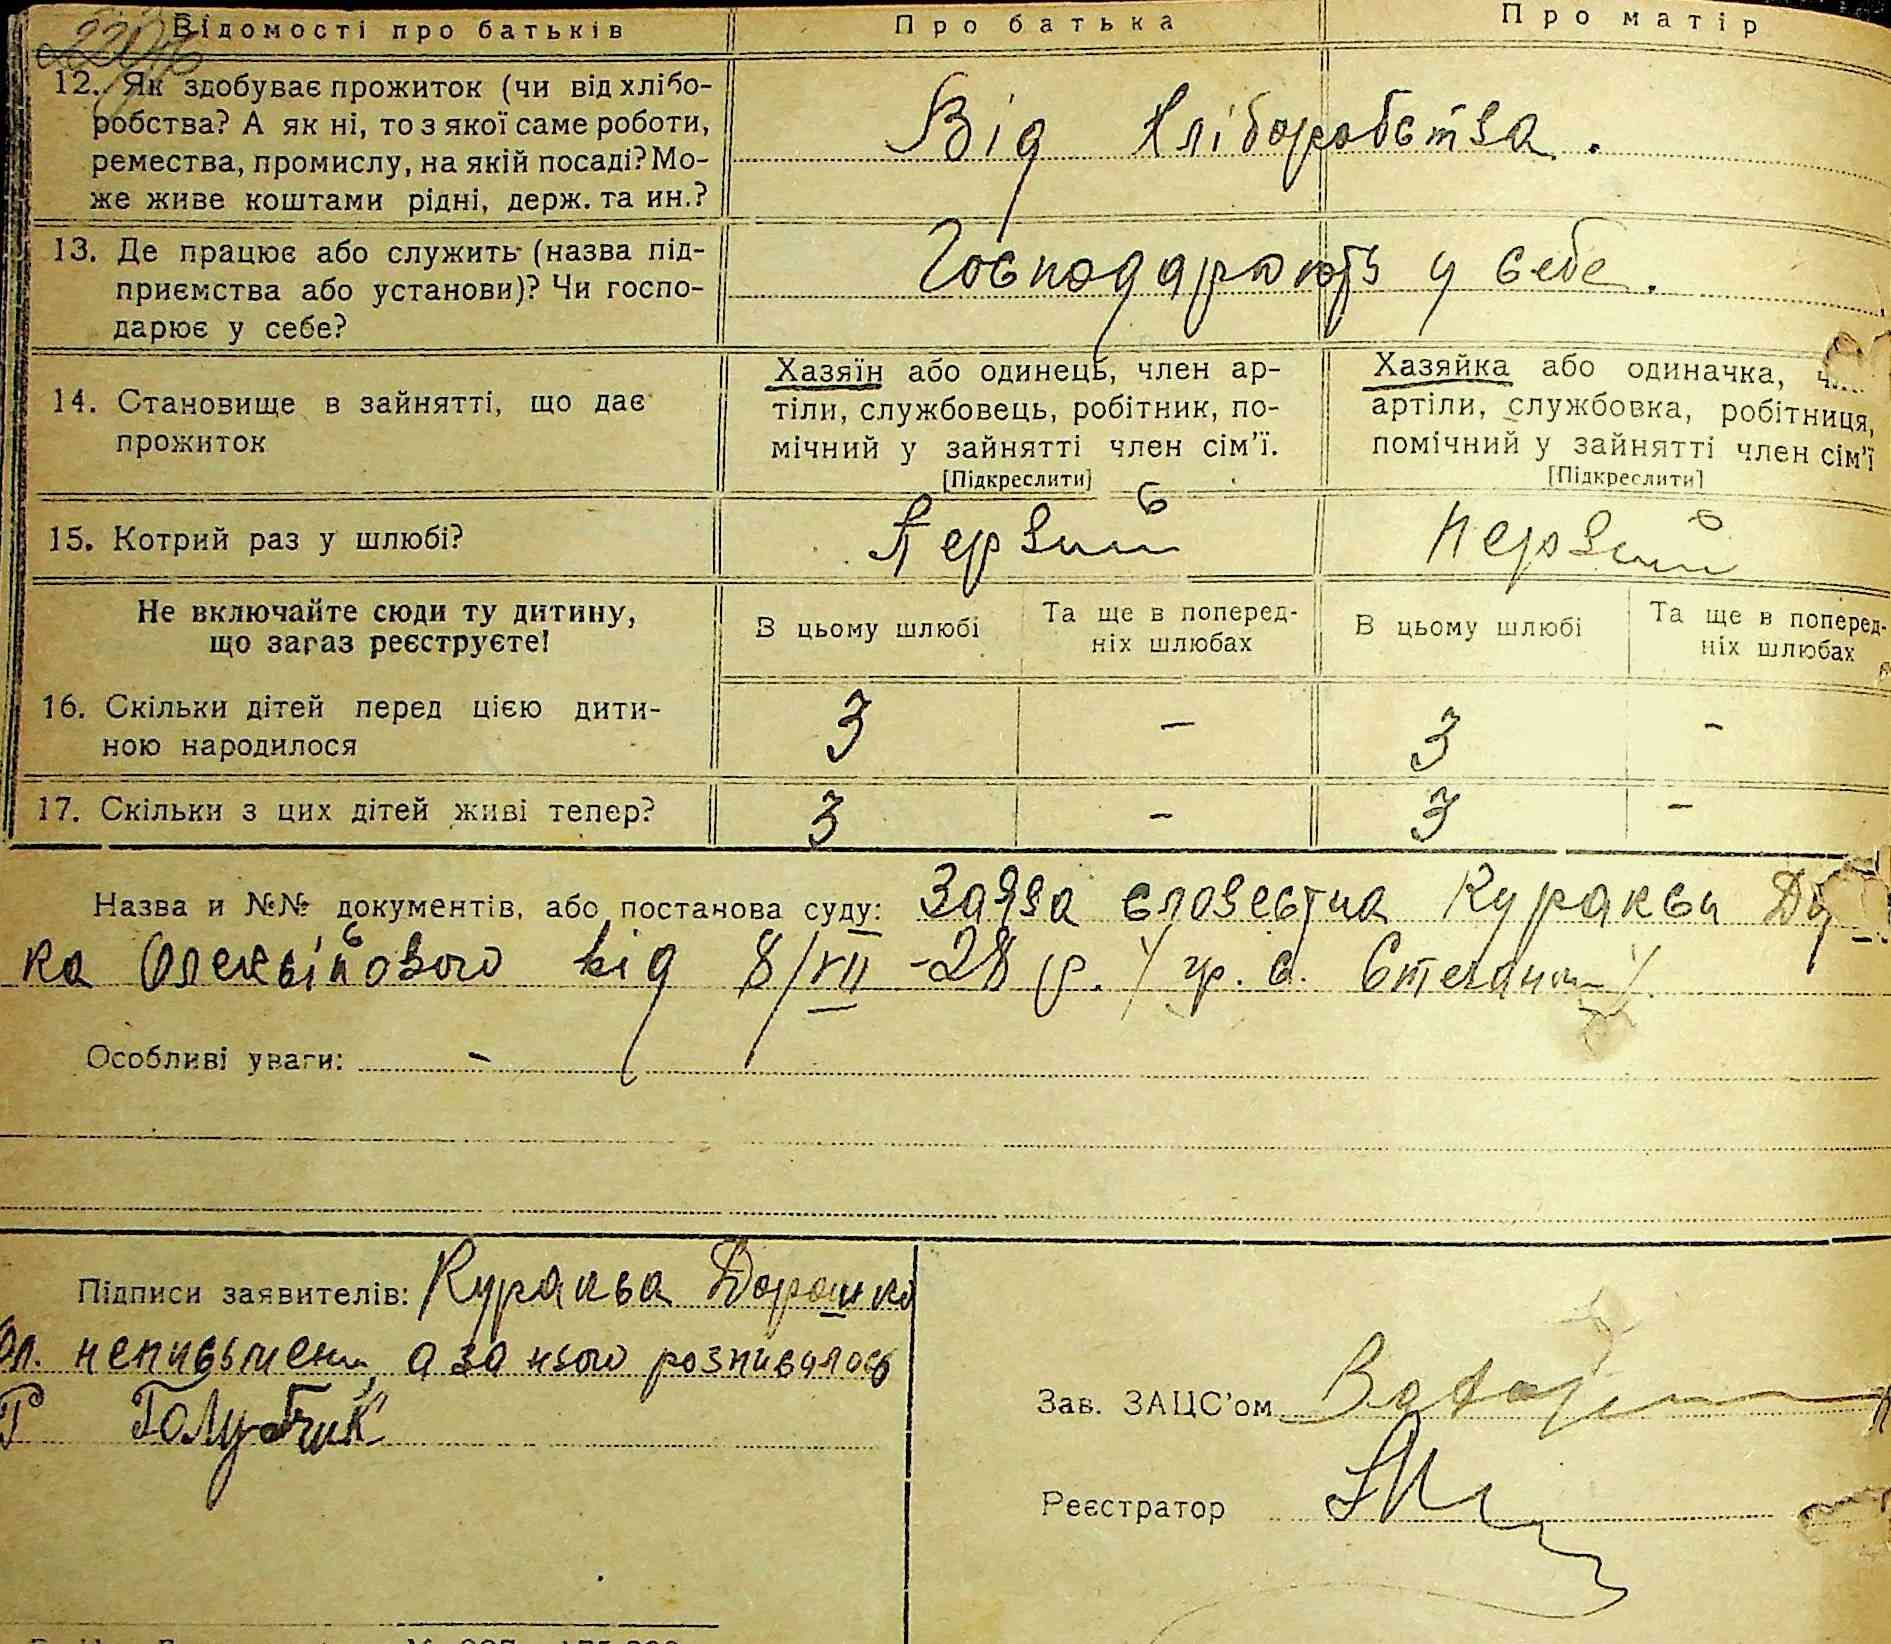 Відомості про батьків Про батька Про матір
12. Як здобуває прожиток (чи від хлібо-
робства? А як ні, то з якої саме роботи,
ремества, промислу, на якій посаді? Мо-
же живе коштами рідні, держ. та ин.?
Від Хліборобства.
13. Де працює або служить (назва під-
приємства або установи)? Чи госпо-
дарює у себе?
Господарюють у себе.
14. Становище в зайнятті, що дає
прожиток
Хазяїн або одинець, член ар-
тіли, службовець, робітник, по-
мічний у зайнятті член сім'ї.
[Підкреслити]
Хазяйка або одиначка,
артіли, службовка, робітниця,
помічний у зайнятті член сім'ї
[Підкреслити]
15. Котрий раз у шлюбі? Первий Первий
Не включайте сюди ту дитину,
що зараз реєструєте!
В цьому шлюбі
Та ще в поперед-
ніх шлюбах
В цьому шлюбі
Та ще в поперед-
ніх шлюбах
16. Скільки дітей перед цією дити-
ною народилося
3 - 3 -
17. Скільки з цих дітей живі тепер? 3 - 3 -
Назва и №№ документів, або постанова суду: Заява словестна Куракси
ка Олексійового від 8/VII -28 р. / гр. с.
Особливі уваги: -
Підписи заявителів: Куракса Дорошко
Ол. неписьмени, а за нього розписалось
Г Голубчик
Зав. ЗАЦС'ом
Реєстратор